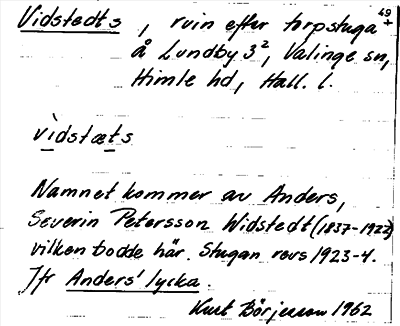 49
Vidstedts, ruin efter torpstuga +
å Lundby 3², Valinge sn,
Himle hd, Hall. l.
vìdstæts
Namnet kommer av Anders,
Severin Petersson Widstedt (1837-1922)
vilken bodde här. Stugan revs 1923-4.
Jfr Anders' lycka.
Kurt Börjesson 1962